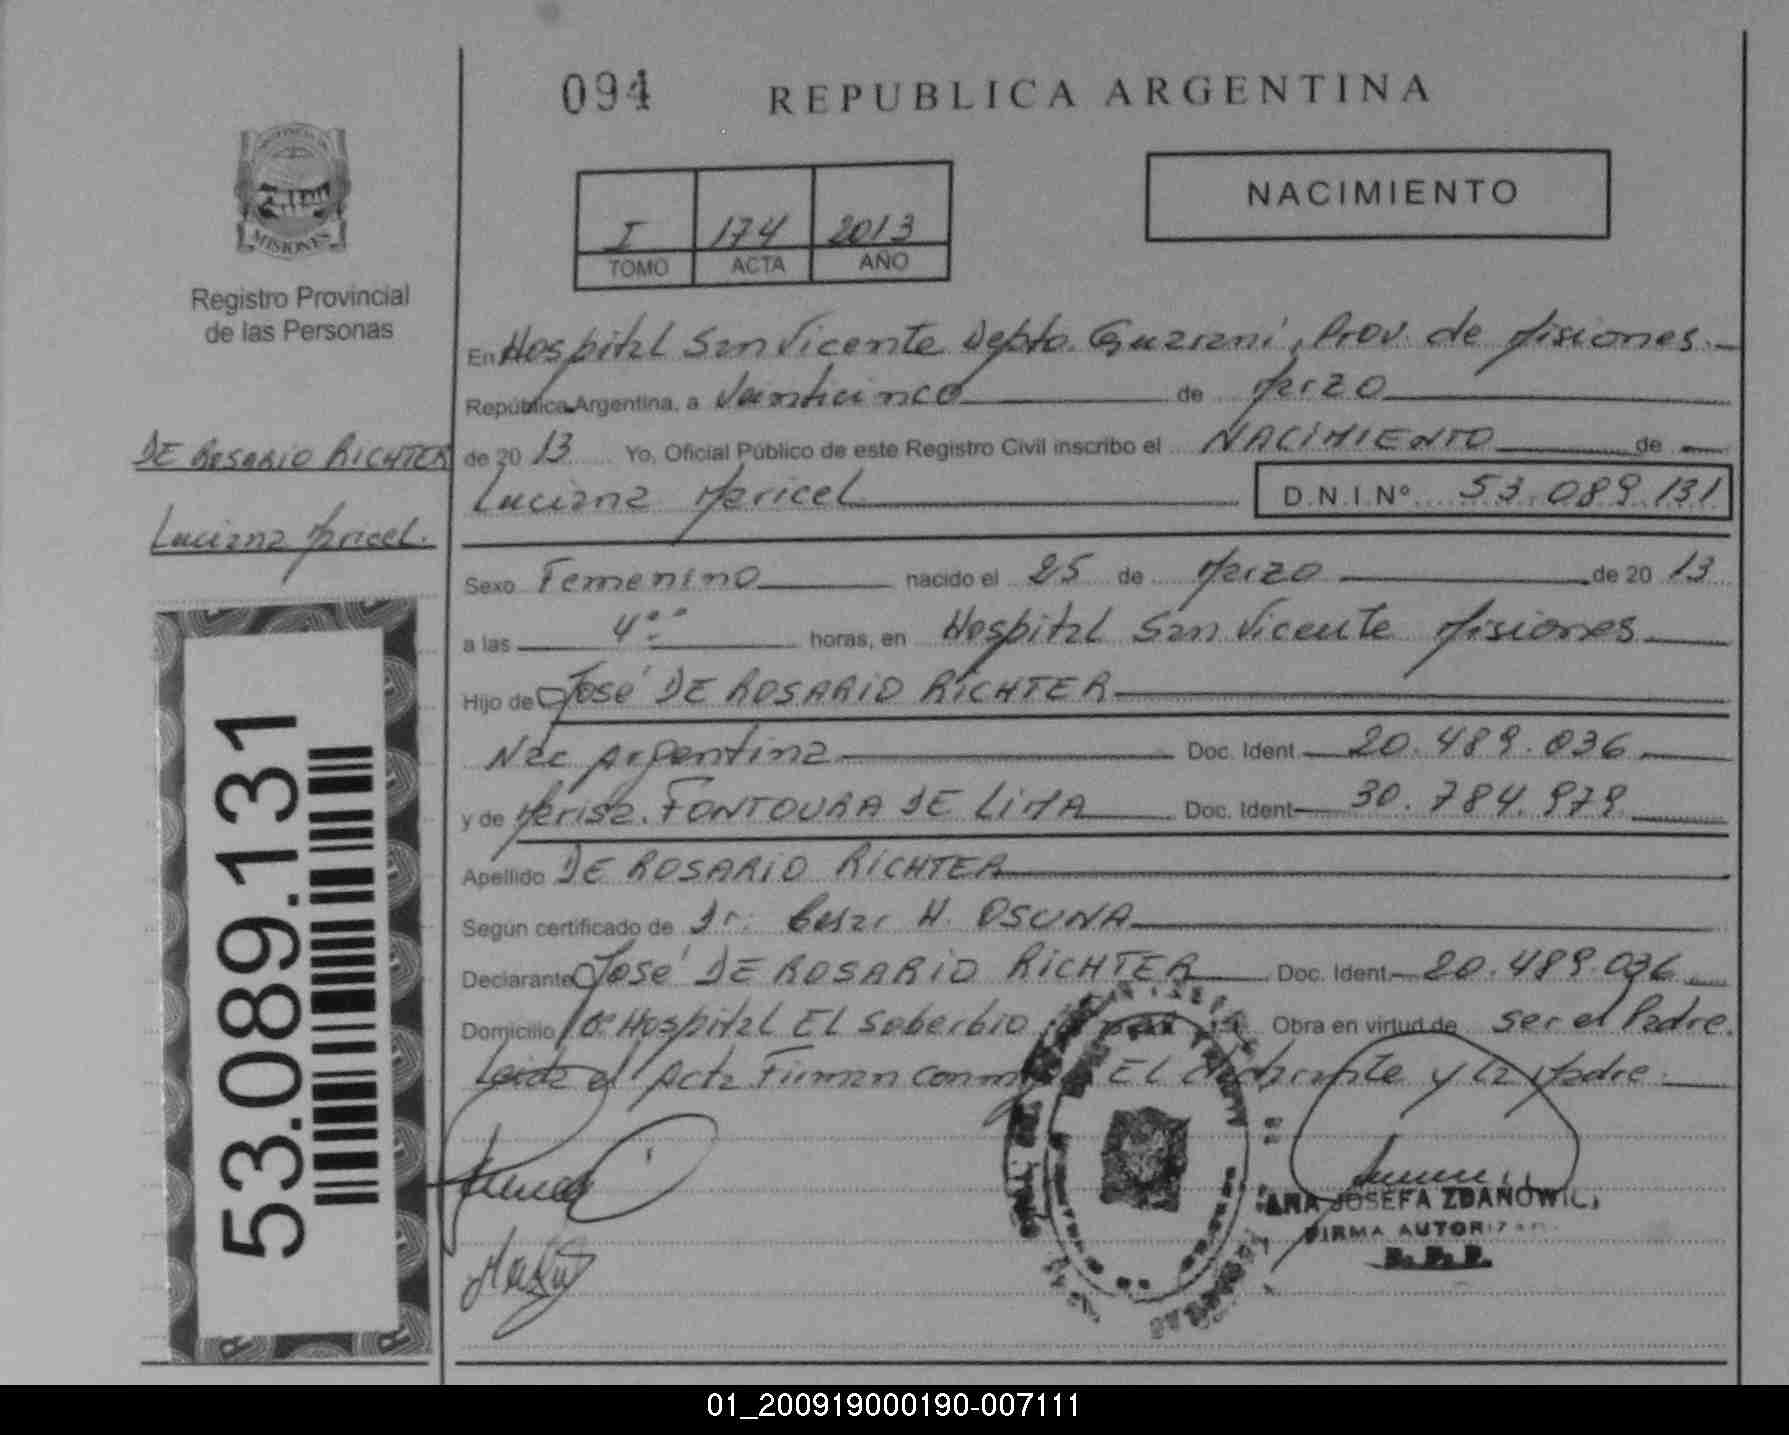 094 REPUBLICA ARGENTINA
MISIONES
Registro Provincial
de las Personas
I 174 2013
TOMO ACTA AÑO
NACIMIENTO
DE ROSARIO RICHTER
Luciana Maricel.
53.089.131
En Hospital San Vicente Depto. Guarani, Prov. de Misiones.
República Argentina, a Veinticinco de Marzo
de 2013 Yo, Oficial Público de este Registro Civil inscribo el NACIMIENTO de
Luciana Maricel D.N.I.Nº 53.089.131
Sexo Femenino nacido el 25 de Marzo de 2013
a las 4 horas, en Hospital San Vicente Misiones
Hijo de José DE ROSARIO RICHTER
Nac Argentina Doc. Ident 20.489.036
y de Marisa. FONTOURA DE LIMA Doc. Ident 30.784.979
Apellido DE ROSARIO RICHTER
Según certificado de Dr. Cesar H. OSUNA
Declarante José DE ROSARIO RICHTER Doc. Ident 20.489.036
Domicilio Hospital El Soberbio Obra en virtud de ser el Padre.
Leida el Acta Firman El declarante y la Madre.
ANA JOSEFA ZDANOWIC
FIRMA AUTORIZAD
R.P.P.
01_200919000190-007111